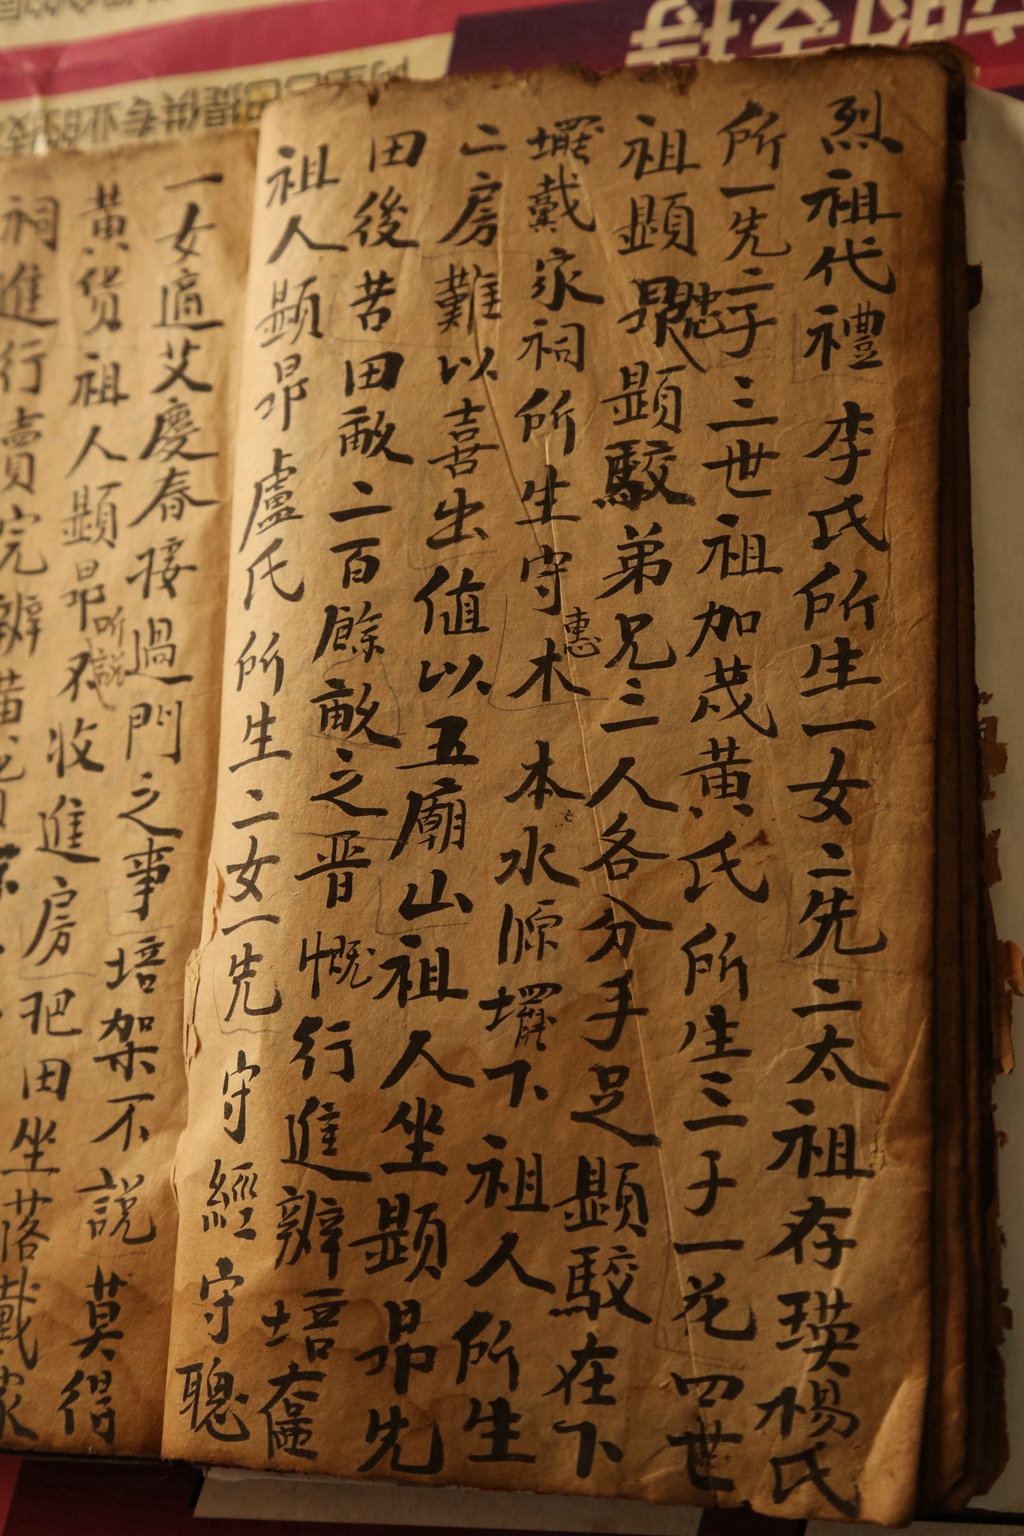 烈祖代禮李氏所生一女二先二太祖存瑛楊氏
所一先二子三世祖加茂黃氏所生三子一花四世
祖顯聰顯駿弟兄三人各分手足顯駿在下
壩戴家祠所生守惠木本水源壩下祖人所生
二房難以喜出值以五廟山祖人坐顯昂先
田後苦田畝二百餘畝之晋慨行進辦培
祖人顯昂盧氏所生二女一先守經守聰
一女適艾慶春接過門之事培架不說莫得
黃货祖人顯昂所說不收進房把田坐落戴家
祠進行賣完辦黃
的支持
提供专业的技